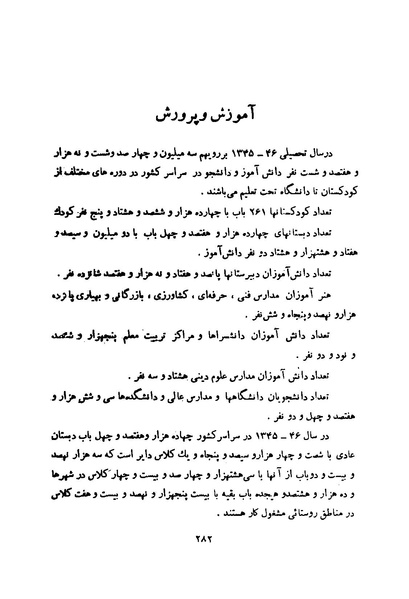 آموزش و پرورش
درسال تحصیلی ۴۶ ــ ۱۳۴۵ برروبهم سه میلیون و چهار صد وشصت و نه هزار
و هفتصد و شصت نفر دانش آموز و دانشجو در سراسر کشور در دوره های مختلف از
کودکستان تا دانشگاه تحت تعلیم می‌باشند .
تعداد کودکستانها ۲۶۱ باب با چهارده هزار و ششصد و هشتاد و پنج نفر کودك
تعداد دبستانهای چهارده هزار و هفتصد و چهل باب با دو میلیون و سیصد و
هفتاد و هشتهزار و هشتاد دو نفر دانش‌آموز .
تعداد دانش‌آموزان دبیرستانها پانصد و هفتاد و نه هزار و هفتصد شانزده نفر .
هنر آموزان مدارس فنی ، حرفه‌ای ، کشاورزی ، بازرگانی و بهیاری پانزده
هزارو نهصد وپنجاه و شش‌نفر .
تعداد دانش آموزان دانشسراها و مراکز تربیت معلم پنجهزار و ششصد
و نود و دو نفر .
تعداد دانش آموزان مدارس علوم دینی هشتاد و سه نفر .
تعداد دانشجویان دانشگاهها و مدارس عالی و دانشکده‌ها سی و شش هزار و
هفتصد و چهل و دو نفر .
در سال ۴۶ ــ ۱۳۴۵ در سراسر کشور چهاده هزار وهفتصد و چهل باب دبستان
عادی با شصت و چهار هزارو سیصد و پنجاه و یك کلاس دایر است که سه هزار نهصد
و بیست و دوباب از آنها با سی‌هشتهزار و چهار صد و بیست و چهار کلاس در شهرها
و ده هزار و هشتصدو هیجده باب بقیه با بیست پنجهزار و نهصد و بیست و هفت کلاس
در مناطق روستائی مشغول کار هستند .
۲۸۲